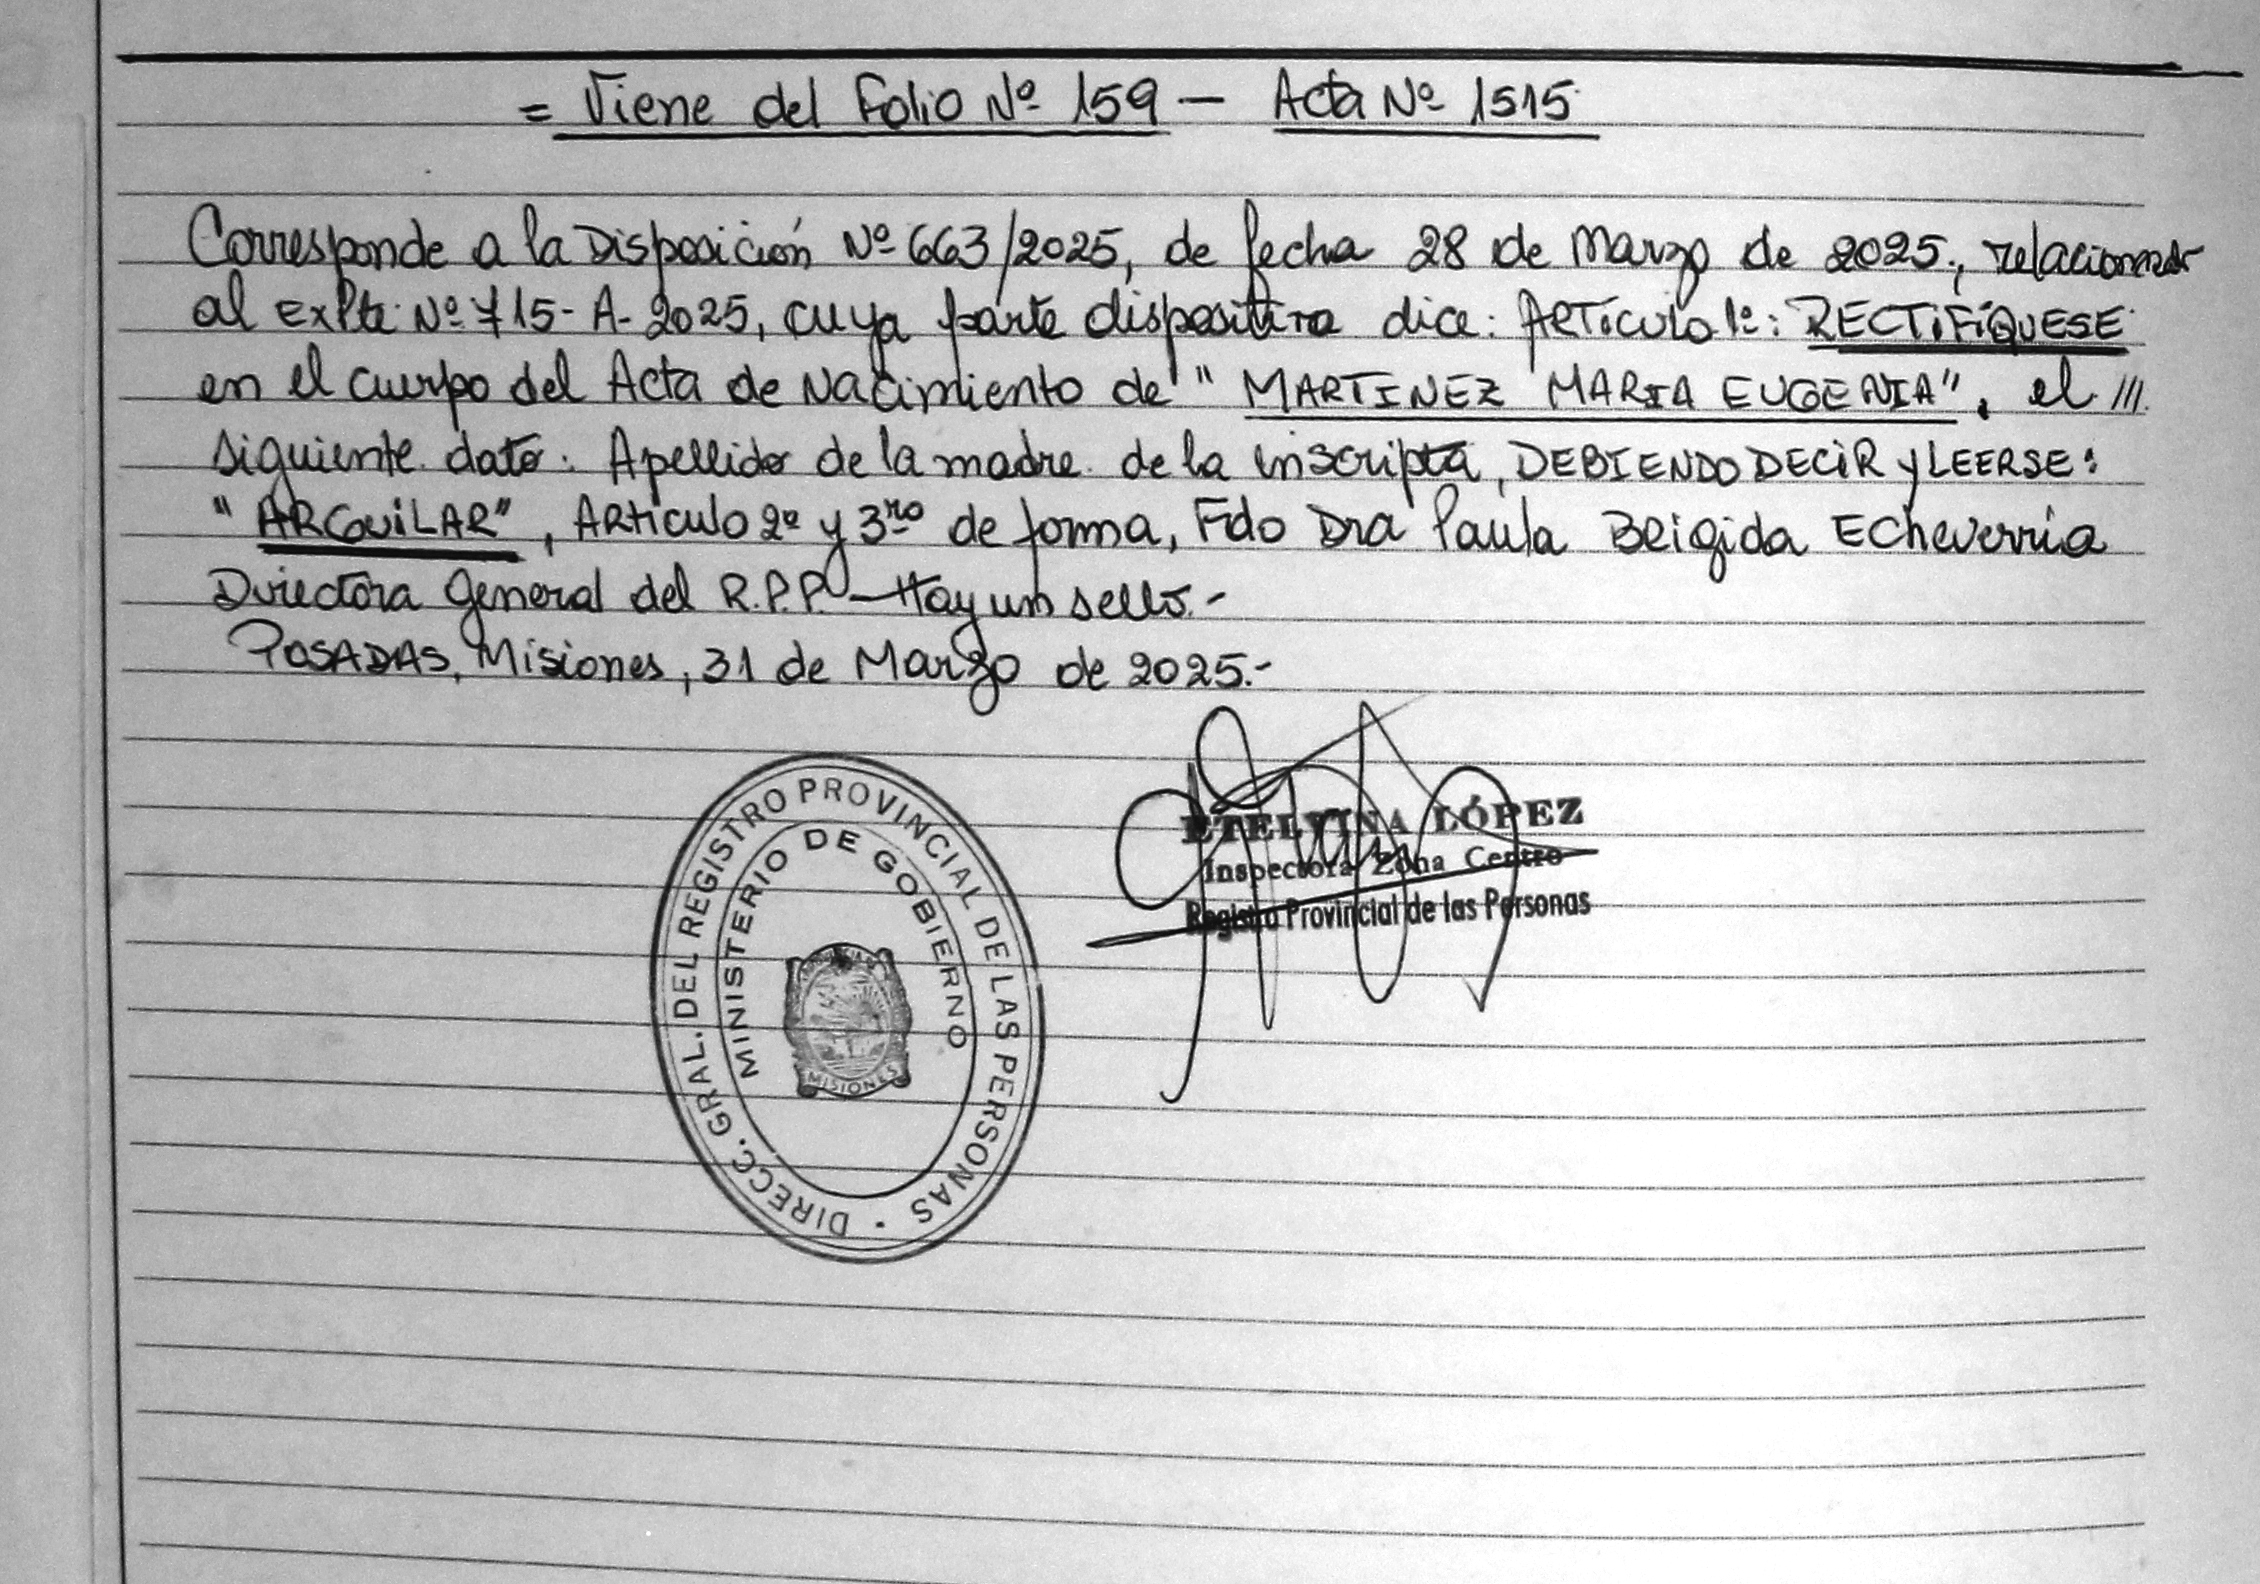 = Viene del Folio Nº 159 — Acta Nº 1515
Corresponde a la Disposición Nº 663/2025, de fecha 28 de Marzo de 2025., relacionado
al Expte Nº 715-A-2025, cuya parte dispositiva dice: Artículo 1º: RECTIFÍQUESE
en el cuerpo del Acta de Nacimiento de "MARTINEZ MARIA EUGENIA", el ///
siguiente dato: Apellido de la madre de la inscripta, DEBIENDO DECIR y LEERSE:
"ARGUILAR", Artículo 2º y 3ro de forma, Fdo Dra Paula Brigida Echeverria
Directora General del R.P.P. — Hay un sello.-
POSADAS, Misiones, 31 de Marzo de 2025.-
ETELVINA LÓPEZ
Inspectora Zona Centro
Registro Provincial de las Personas
DIRECC. GRAL. DEL REGISTRO PROVINCIAL DE LAS PERSONAS
MINISTERIO DE GOBIERNO
MISIONES